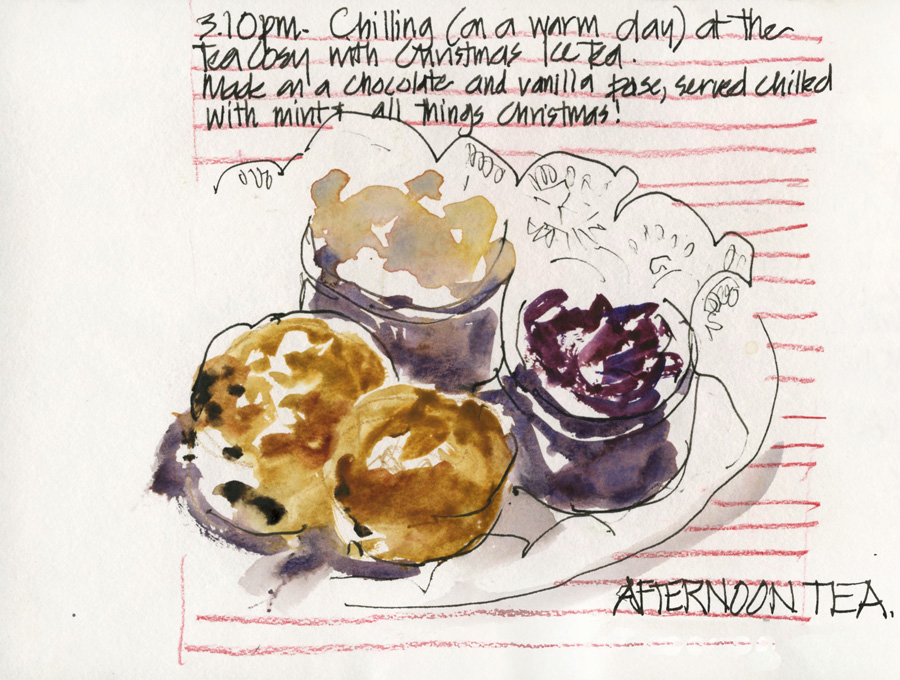 3.10pm. Chilling (on a warm day) at the
Tea Cosy with Christmas Ice Tea.
Made on a chocolate and vanilla base, served chilled
with mint + all things Christmas!
AFTERNOON TEA.